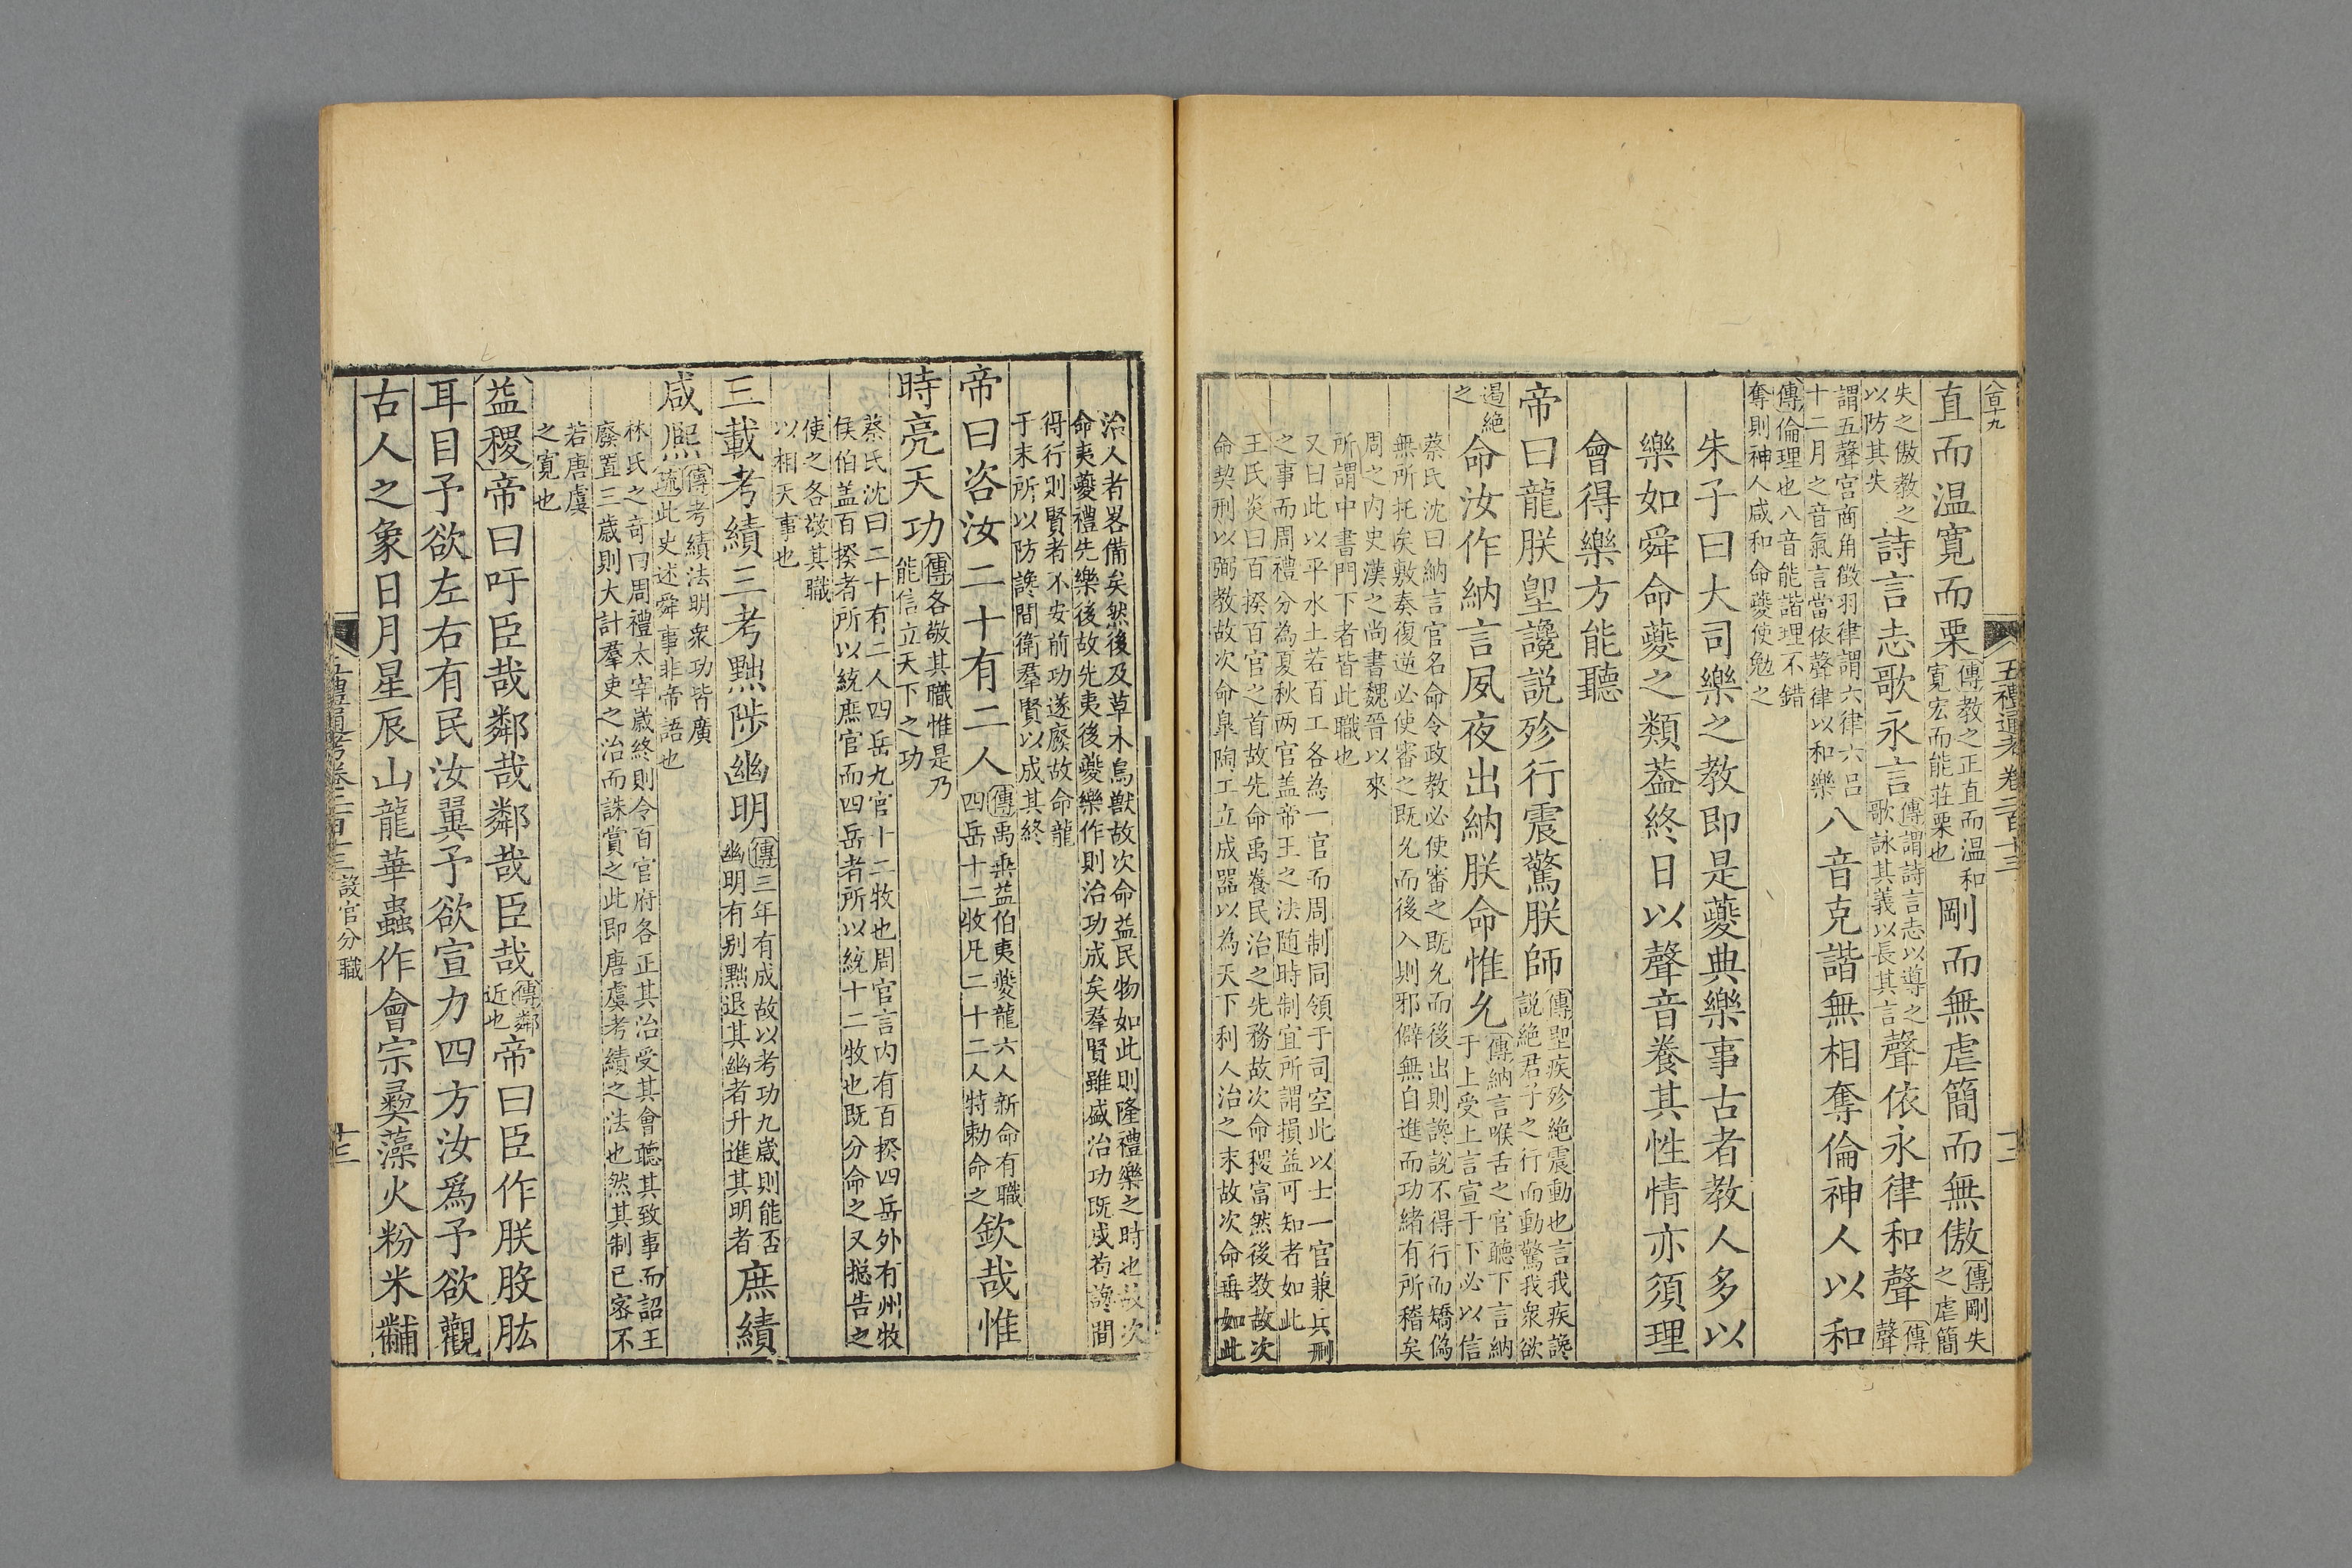 八百十九
五禮通考卷二百十三
十二
直而温寛而栗
傳教之正直而温和
寛宏而能莊栗也
剛而無虐簡而無傲
傳剛失
之虐簡
失之傲教之
以防其失
詩言志歌永言
傳謂詩言志以導之
歌詠其義以長其言
聲依永律和聲
傳
聲
謂五聲宮商角徵羽律謂六律六呂
十二月之音氣言當依聲律以和樂
八音克諧無相奪倫神人以和
傳倫理也八音能諧理不錯
奪則神人咸和命夔使勉之
朱子曰大司樂之教即是夔典樂事古者教人多以
樂如舜命夔之類葢終日以聲音養其性情亦須理
會得樂方能聽
帝曰龍朕堲讒説殄行震驚朕師
傳堲疾殄絶震動也言我疾讒
説絶君子之行而動驚我衆欲
遏絶
之
命汝作納言夙夜出納朕命惟允
傳納言喉舌之官聽下言納
于上受上言宣于下必以信
蔡氏沈曰納言官名命令政教必使審之既允而後出則讒說不得行而矯僞
無所托矣敷奏復逆必使審之既允而後入則邪僻無自進而功緒有所稽矣
周之内史漢之尚書魏晉以來
所謂中書門下者皆此職也
又曰此以平水土若百工各為一官而周制同領于司空此以士一官兼兵刑
之事而周禮分為夏秋两官盖帝王之法随時制宜所謂損益可知者如此
王氏炎曰百揆百官之首故先命禹養民治之先務故次命稷富然後教故次
命契刑以弼教故次命臯陶工立成器以為天下利人治之末故次命垂如此
治人者畧備矣然後及草木鳥獸故次命益民物如此則隆禮樂之時也故次
命夷夔禮先樂後故先夷後夔樂作則治功成矣羣賢雖盛治功既成苟讒間
得行則賢者不安前功遂廢故命龍
于末所以防讒間衛羣賢以成其終
帝曰咨汝二十有二人
傳禹垂益伯夷夔龍六人新命有職
四岳十二牧凡二十二人特勅命之
欽哉惟
時亮天功
傳各敬其職惟是乃
能信立天下之功
蔡氏沈曰二十有二人四岳九官十二牧也周官言内有百揆四岳外有州牧
侯伯盖百揆者所以統庶官而四岳者所以統十二牧也既分命之又摠告之
使之各敬其職
以相天事也
三載考績三考黜陟幽明
傳三年有成故以考功九歲則能否
幽明有别黜退其幽者升進其明者
庶績
咸熙
傳考績法明衆功皆廣
疏此史述舜事非帝語也
林氏之竒曰周禮太宰嵗終則令百官府各正其治受其會聽其致事而詔王
廢置三歲則大計羣吏之治而誅賞之此即唐虞考績之法也然其制已密不
若唐虞
之寛也
益稷帝曰吁臣哉鄰哉鄰哉臣哉
傳鄰
近也
帝曰臣作朕股肱
耳目予欲左右有民汝翼予欲宣力四方汝爲予欲觀
古人之象日月星辰山龍華蟲作會宗彛藻火粉米黼
五禮通考卷二百十三
設官分職
十三